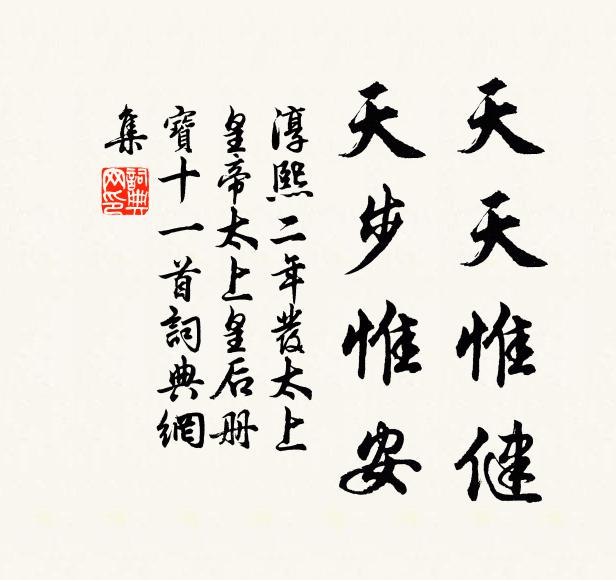 天天惟健
天步惟安
淳熙二年發太上
皇帝太上皇后册
寶十一首詞典網
集
詞典
网印